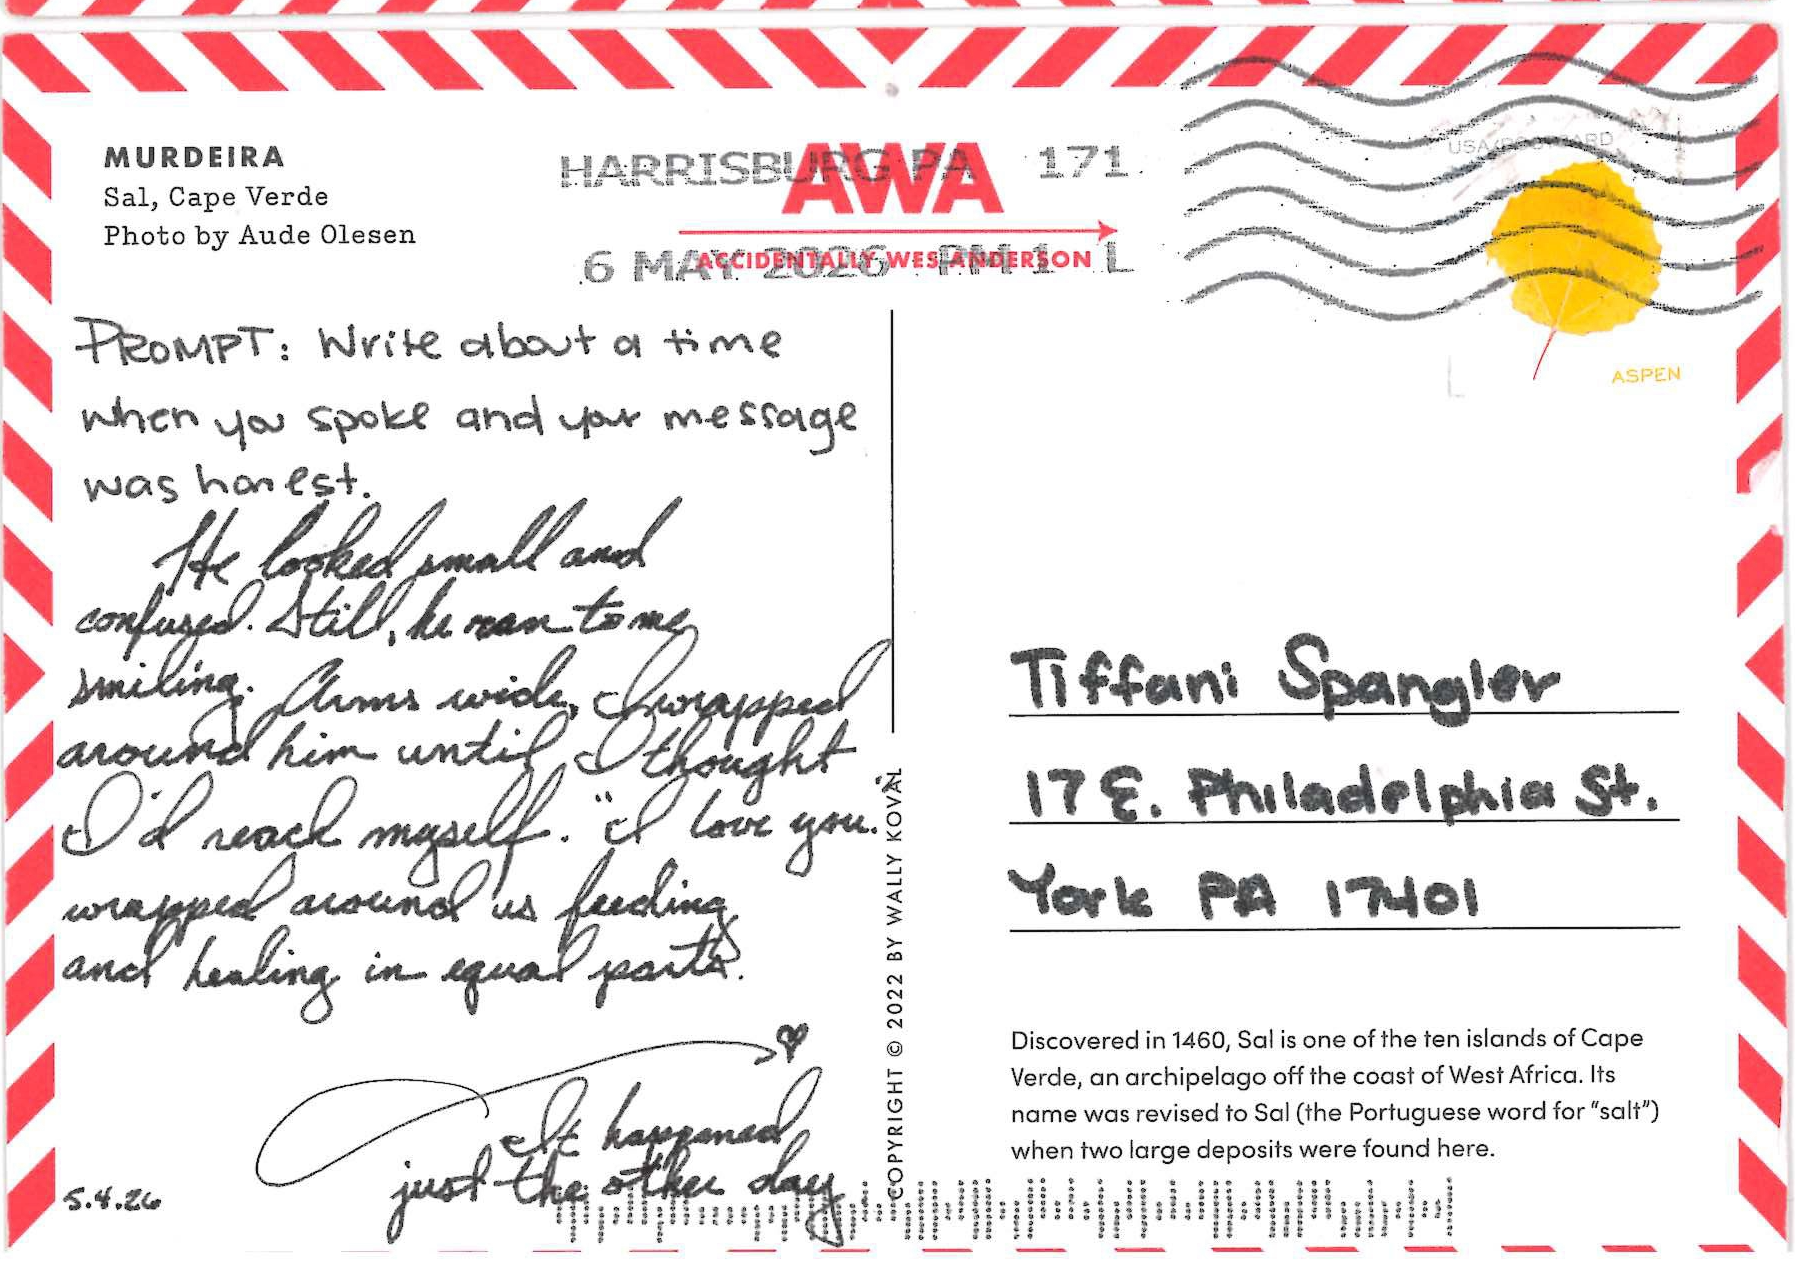 MURDEIRA
Sal, Cape Verde
Photo by Aude Olesen
HARRISBURG PA 171
AWA
ACCIDENTALLY WES ANDERSON
6 MAY 2026 PM 1 L
USA POSTCARD
ASPEN
PROMPT: Write about a time
when you spoke and your message
was honest.
He looked small and
confused. Still, he ran to me
smiling. Arms wide, I wrapped
around him until I thought
I'd reach myself. "I love you.
wrapped around us feeding
and healing in equal parts.
It happened
just the other day
5.4.26
COPYRIGHT © 2022 BY WALLY KOVAL
Tiffani Spangler
17 E. Philadelphia St.
York PA 17401
Discovered in 1460, Sal is one of the ten islands of Cape
Verde, an archipelago off the coast of West Africa. Its
name was revised to Sal (the Portuguese word for “salt”)
when two large deposits were found here.